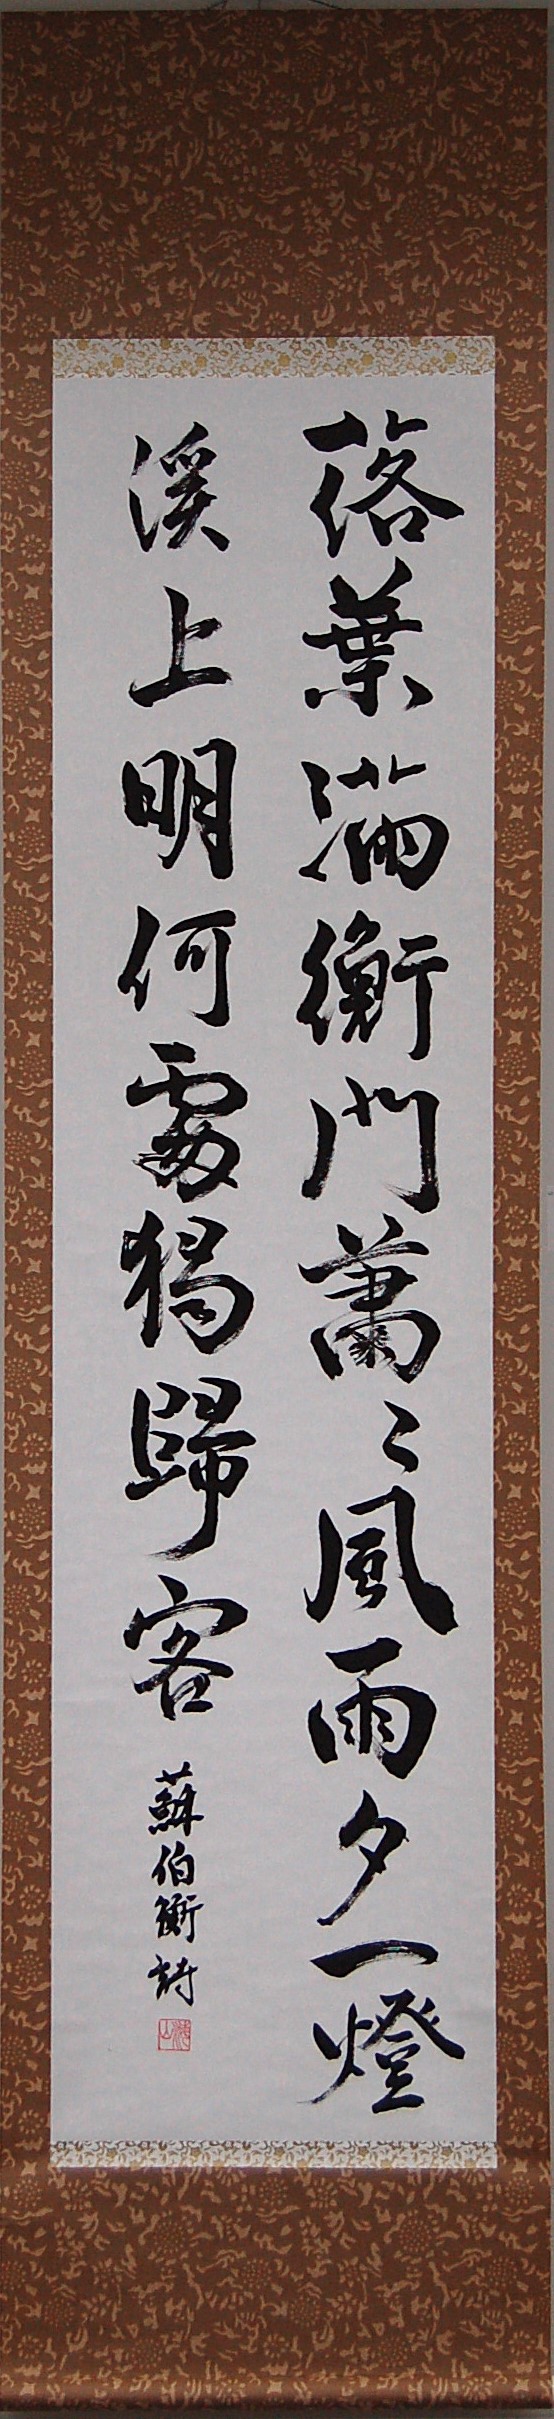 落葉滿衡門蕭〻風雨夕一燈
溪上明何處獨歸客
蘇伯衡詩